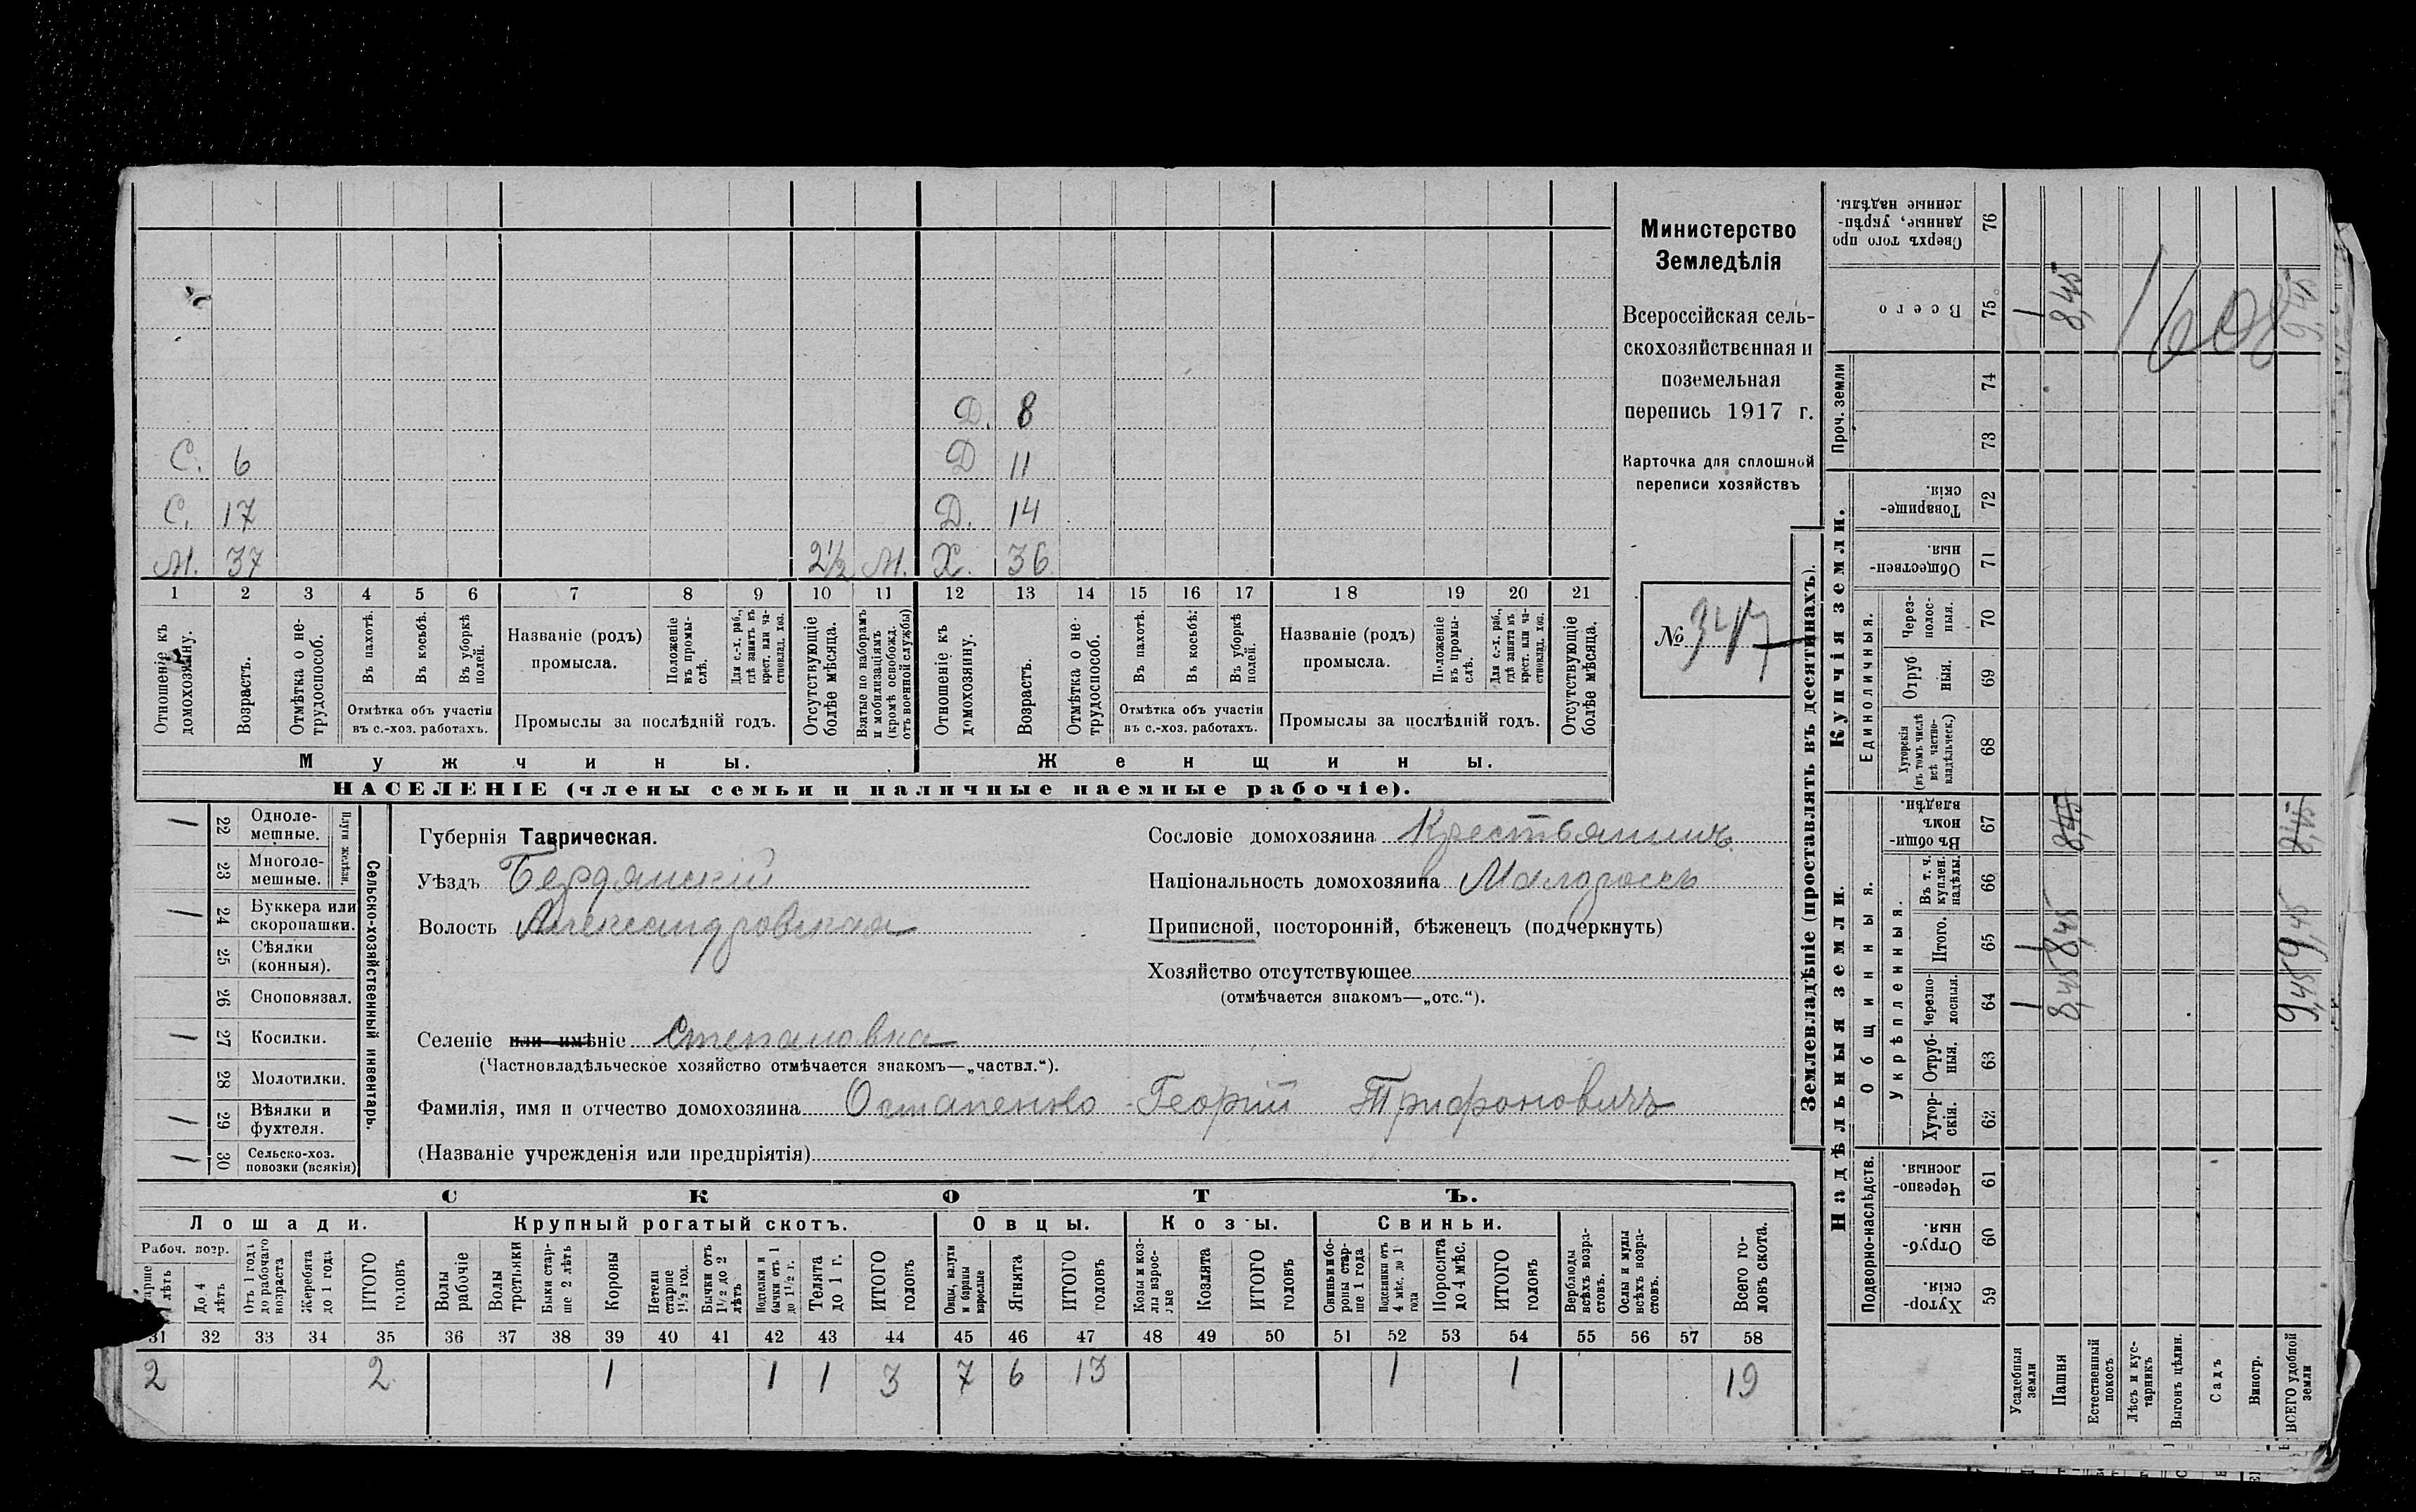 Министерство
Земледѣлія
Всероссійская сель-
скохозяйственная и
поземельная
перепись 1917 г.
Карточка для сплошной
переписи хозяйствъ
№ 347
Д. 8
С. 6 Д 11
С. 17 Д. 14
М. 37 2½ М. Х. 36
1 2 3 4 5 6 7 8 9 10 11 12 13 14 15 16 17 18 19 20 21
Отношеніе къ домохозяину.
Возрастъ.
Отмѣтка о не-трудоспособ.
Въ пахотѣ.
Въ косьбѣ.
Въ уборкѣ полей.
Отмѣтка объ участіи
въ с.-хоз. работахъ.
Названіе (родъ)
промысла.
Положеніе въ промы-слѣ.
Для с.-х. раб., гдѣ занятъ въ крест. или ча-стновлад. хоз.
Промыслы за послѣдній годъ.
Отсутствующіе болѣе мѣсяца.
Взятые по наборамъ и мобилизаціямъ (кромѣ освобожд. отъ военной службы)
Отношеніе къ домохозяину.
Возрастъ.
Отмѣтка о не-трудоспособ.
Въ пахотѣ.
Въ косьбѣ.
Въ уборкѣ полей.
Отмѣтка объ участіи
въ с.-хоз. работахъ.
Названіе (родъ)
промысла.
Положеніе въ промы-слѣ.
Для с.-х. раб., гдѣ занята въ крест. или ча-стновлад. хоз.
Промыслы за послѣдній годъ.
Отсутствующіе болѣе мѣсяца.
Мужчины. Женщины.
НАСЕЛЕНІЕ (члены семьи и наличные наемные рабочіе).
Сельско-хозяйственный инвентарь.
Плуги желѣзн.
1 22 Одноле-мешные.
23 Многоле-мешные.
1 24 Буккера или скоропашки.
25 Сѣялки (конныя).
26 Сноповязал.
1 27 Косилки.
28 Молотилки.
1 29 Вѣялки и фухтеля.
1 30 Сельско-хоз. повозки (всякія)
Губернія Таврическая.
Уѣздъ Бердянскій
Волость Александровская
Сословіе домохозяина Крестьянинъ
Національность домохозяина Малороссъ
Приписной, посторонній, бѣженецъ (подчеркнуть)
Хозяйство отсутствующее
(отмѣчается знакомъ—„отс.“).
Селеніе или имѣніе Степановка
(Частновладѣльческое хозяйство отмѣчается знакомъ—„частвл.“).
Фамилія, имя и отчество домохозяина Остапенко Георгій Трифоновичъ
(Названіе учрежденія или предпріятія)
СКОТЪ.
Лошади. Крупный рогатый скотъ. Овцы. Козы. Свиньи.
Рабоч. возр.
До 4 лѣтъ
Отъ 1 года до рабочаго возраста
Жеребята до 1 года
ИТОГО головъ
Волы рабочіе
Волы третьяки
Быки стар-ше 2 лѣтъ
Коровы
Нетели старше 1½ год.
Бычки отъ 1½ до 2 лѣтъ
Подтелки и бычки отъ 1 до 1½ г.
Телята до 1 г.
ИТОГО головъ
Овцы, валухи и бараны взрослые
Ягнята
ИТОГО головъ
Козы и коз-лы взрос-лые
Козлята
ИТОГО головъ
Свиньи и бо-ровы стар-ше 1 года
Подсвинки отъ 4 мѣс. до 1 года
Поросята до 4 мѣс.
ИТОГО головъ
Верблюды всѣхъ возра-стовъ.
Ослы и мулы всѣхъ возра-стовъ.
Всего го-ловъ скота.
31 32 33 34 35 36 37 38 39 40 41 42 43 44 45 46 47 48 49 50 51 52 53 54 55 56 57 58
2 2 1 1 1 3 7 6 13 1 1 19
Землевладѣніе (проставлять въ десятинахъ).
Купчія земли.
Надѣльныя земли.
Проч. земли
Единоличныя.
Общинныя.
Укрѣпленныя.
Подворно-наслѣдств.
Сверхъ того про-данные, укрѣп-ленные надѣлы. 76
Всего 75 1 8,45 9,45
1608
74
73
Товарище-скія. 72
Обществен-ныя 71
Через-полос-ныя. 70
Отруб-ныя. 69
Хуторскія (въ томъ числѣ всѣ частно-владѣльческ.) 68
Въ общин-номъ владѣн. 67 8,45 8,45
Въ т. ч. куплен. надѣлы. 66
Итого. 65 1 8,45 9,45
Черезпо-лосныя. 64 1 8,45 9,45
Отруб-ныя. 63
Хутор-скія. 62
Черезпо-лосныя. 61
Отруб-ныя. 60
Хутор-скія. 59
Усадебныя земли
Пашня
Естественный покосъ
Лѣсъ и кус-тарникъ
Выгонъ цѣлин.
Садъ
Виногр.
ВСЕГО удобной земли